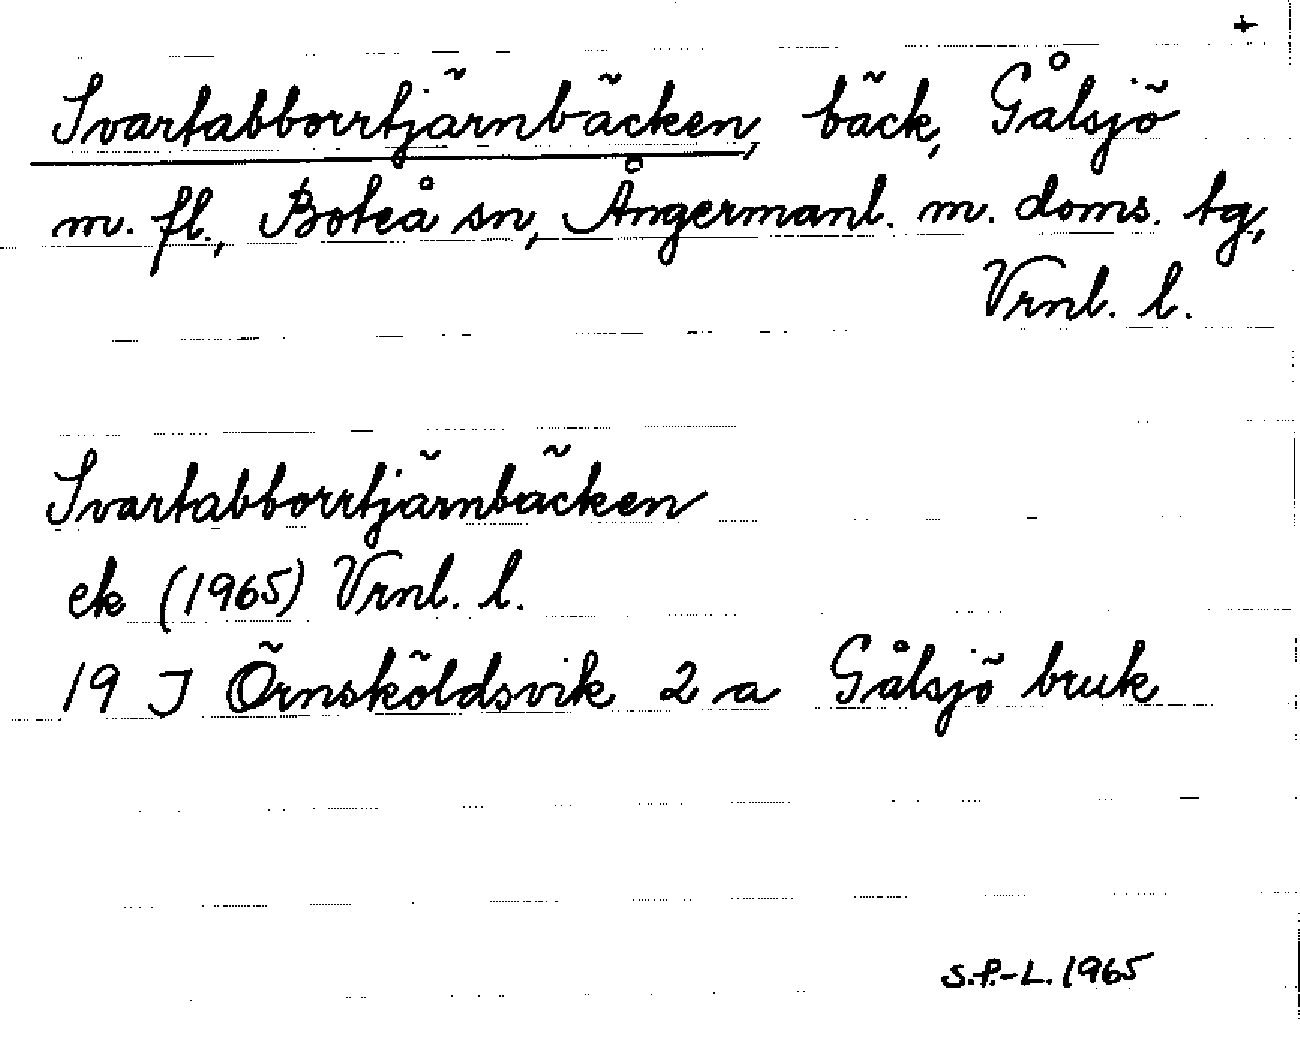 +
Svartabborrtjärnbäcken, bäck, Gålsjö
m. fl., Boteå sn, Ångermanl. m. doms. tg,
Vrnl. l.
Svartabborrtjärnbäcken
ek (1965) Vrnl. l.
19 J Örnsköldsvik 2 a Gålsjö bruk
S.P.-L. 1965